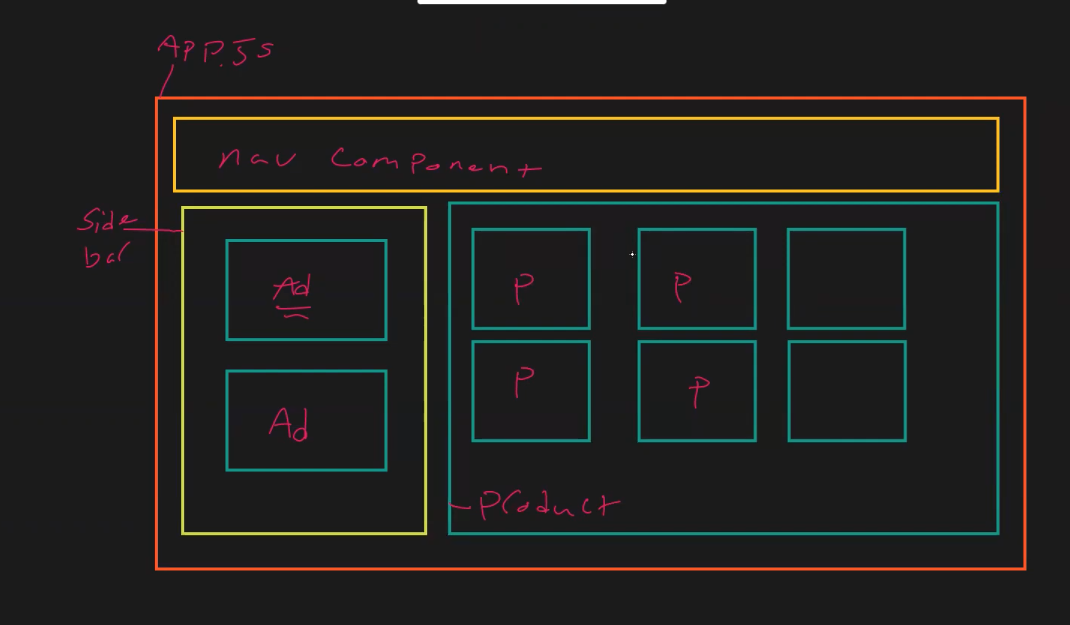 APP.Js
nav Component
Side
bar
Ad
P
P
Ad
P
P
Product